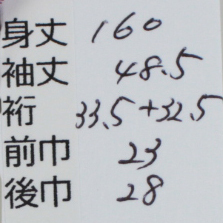 身丈 160
袖丈 48.5
裄 33.5+32.5
前巾 23
後巾 28